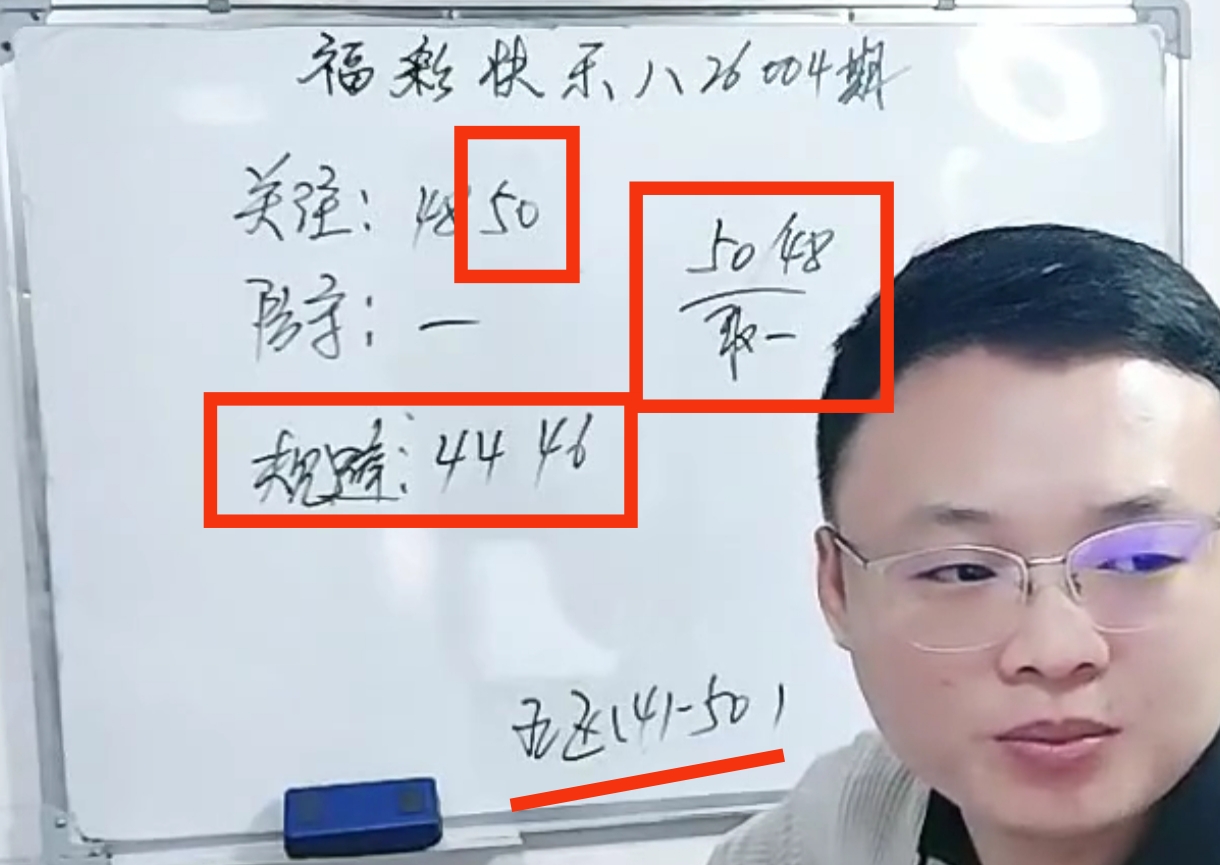 福彩快乐八26004期
关注：48 50
防守：一
50 48
取一
规避：44 46
五区(41-50)